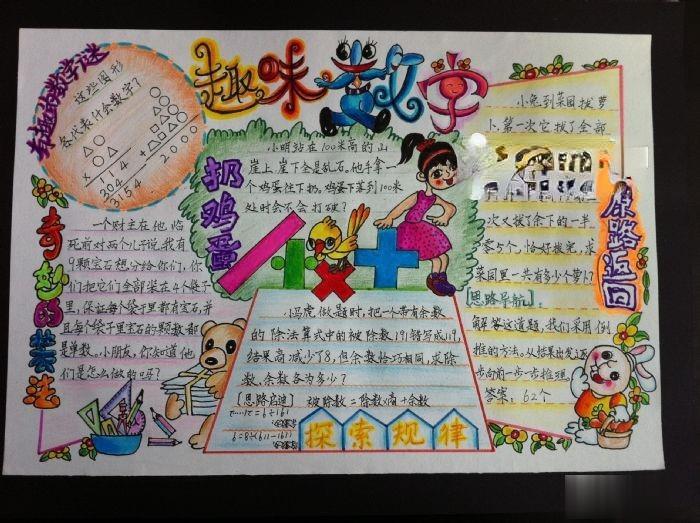 趣味数学
有趣的数学谜
这些图形
各代表什么数字?
○
△○
△○
×
114
304
3154
○
○○
△○
□△○
+△□△○
2000
扔鸡蛋
小明站在100米高的山
崖上,崖下全是乱石。他手拿一
个鸡蛋往下扔。鸡蛋下落到100米
处时会不会打破?
奇妙的装法
一个财主在他临
死前对两个儿子说,我有
9颗宝石想分给你们,你
们把它们全部装在4个袋子
里,保证每个袋子里都有宝石,并
且每个袋子里宝石的颗数都
是单数。小朋友,你知道他
们是怎么做的吗?
小马虎做题时,把一个带有余数
的除法算式中的被除数191错写成119,
结果商减少了8,但余数恰巧相同,求除
数、余数各为多少?
[思路启迪]
被除数=除数×商+余数
探索规律
原路返回
小兔到菜园拔萝
卜,第一次它拔了全部
次又拔了余下的一半
零5个,恰好拔完,求
菜园里一共有多少个萝卜?
[思路导航]
解答这道题,我们采用倒
推的方法。从结果出发逐
步向前一步一步推理。
答案:62个